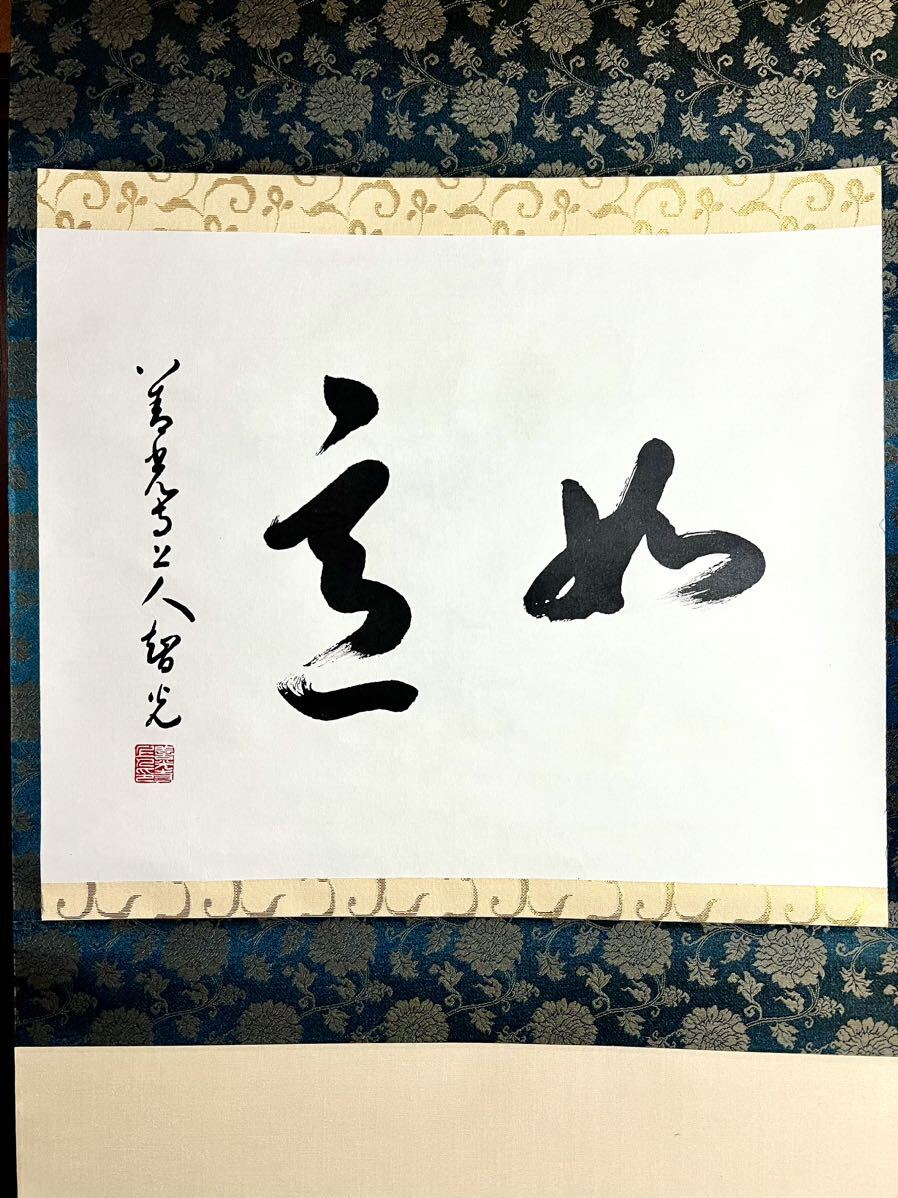 如意
善光寺上人智光